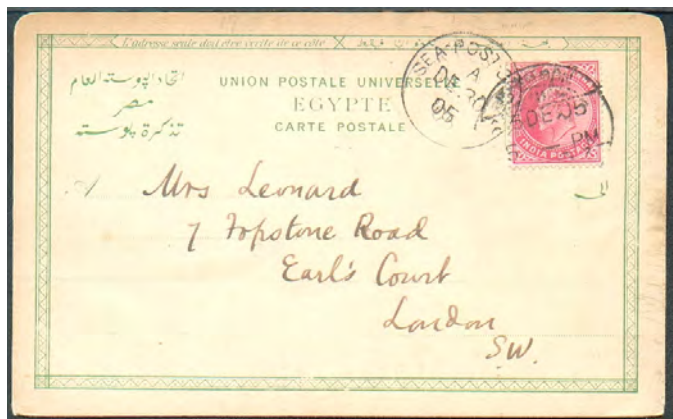 L'adresse seule doit être écrite de ce côté
اتحاد البوسته العام
مصر
تذكرة بوسته
UNION POSTALE UNIVERSELLE
EGYPTE
CARTE POSTALE
SEA-POST
A
DE 30
05
DE 05
PM
INDIA POSTAGE
الى
A
Mrs Leonard
7 Topstone Road
Earl's Court
London
S.W.